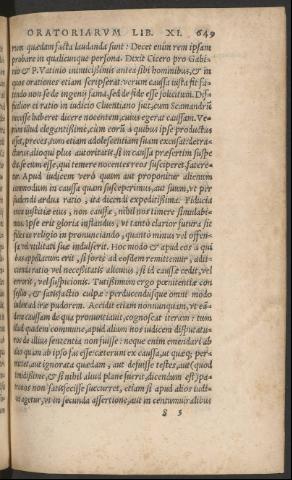 ORATORIARVM LIB. XI. 649
rum quædam facta laudanda sunt: Decet enim rem ipsam
probare in qualicunque persona. Dixit Cicero pro Gabi-
nio & P. Vatinio inimicissimis antea sibi hominibus, & in
eos orationes etiam scripserat: verum caussa iusta fit fa-
tendo non se de ingenij fama, sed de fide esse solicitum. Dif-
ficilior ei ratio in iudicio Cluentiano fuit, cum Scamandrũ
necesse haberet dicere nocentem, cuius egerat caussam. Ve-
rum illud elegantissimè, cùm eorũ à quibus ipse productus
esset, preces, tum etiam adolescentiam suam excusat: detra-
cturus alioqui plus autoritatis, si in caussa præsertim suspe
cta se eum esse, qui temere nocentes reos susciperet, fatere-
tur. Apud iudicem verò quum aut proponitur alienum
commodum in caussa quam suscepimus, aut suum, vt per
suadendi ardua ratio, ita dicendi expeditissima. Fiducia
enim iustitiæ eius, non caussæ, nihil nos timere simulabi-
mus. Ipse erit gloria inflandus, vt tanto clarior futura sit
fides ac religio in pronunciando, quanto minus vel offen-
sæ vel vtilitati suæ indulserit. Hoc modo & apud eos à qui
bus appellatum erit, si fortè ad eosdem remittemur, adii-
cienda ratio vel necessitatis alicuius, si id caussæ cedit, vel
erroris, vel suspicionis. Tutissimum ergo pœnitentiæ con
fessio, & satisfactio culpæ: perducendúsque omni modo
iudex ad iræ pudorem. Accidit etiam nonnunquam, vt eã-
dem caussam de qua pronunciauit, cognoscat iterum: tum
illud quidem commune, apud alium nos iudicem disputatu-
ros de illius sententia non fuisse: neque enim emendari ab
alio quàm ab ipso fas esse: cæterum ex caussa, ut quæq; per-
mittet, aut ignorata quædam, aut defuisse testes, aut (quod
timidissimè, & si nihil aliud planè fuerit, dicendum est) pa-
tronos non satisfecisse succurret, etiam si apud alios iudi-
ces agetur, vt in secunda assertione, aut in centumuiralibus
8 5